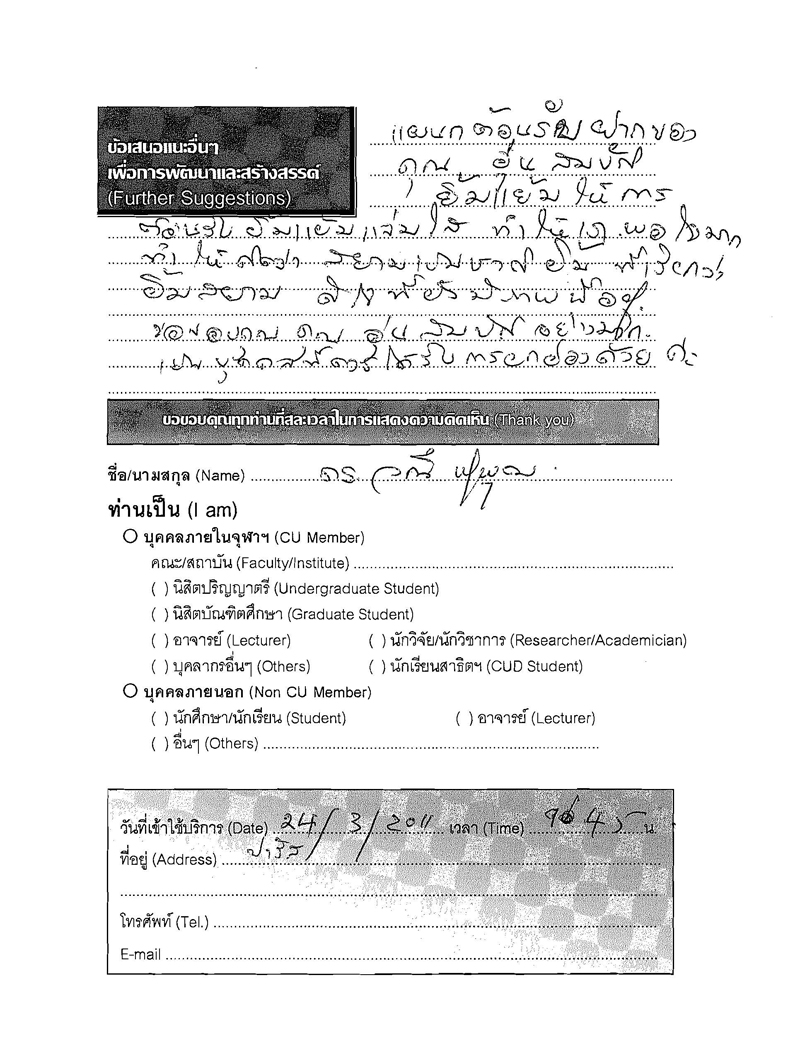 ข้อเสนอแนะอื่นๆ
เพื่อการพัฒนาและสร้างสรรค์
(Further Suggestions)
แผนกต้อนรับ ฝากของ
คุณ อุ่น สมบัติ
ยิ้มแย้ม ให้ การ
ต้อนรับ ยิ้มแย้ม แจ่มใส ทำให้ พอใจมาก
ทำให้ สยาม ยิ้ม
ยิ้มสยาม
ขอขอบคุณ คุณ อุ่น สมบัติ อย่าง
เป็น บุคคลที่ควรได้รับ การยกย่องด้วย ค่ะ
ขอขอบคุณทุกท่านที่สละเวลาในการแสดงความคิดเห็น (Thank you)
ชื่อ/นามสกุล (Name) ดร.
ท่านเป็น (I am)
บุคคลภายในจุฬาฯ (CU Member)
คณะ/สถาบัน (Faculty/Institute)
( ) นิสิตปริญญาตรี (Undergraduate Student)
( ) นิสิตบัณฑิตศึกษา (Graduate Student)
( ) อาจารย์ (Lecturer) ( ) นักวิจัย/นักวิชาการ (Researcher/Academician)
( ) บุคลากรอื่นๆ (Others) ( ) นักเรียนสาธิตฯ (CUD Student)
บุคคลภายนอก (Non CU Member)
( ) นักศึกษา/นักเรียน (Student) ( ) อาจารย์ (Lecturer)
( ) อื่นๆ (Others)
วันที่เข้าใช้บริการ (Date) 24/3/2011 เวลา (Time) น.
ที่อยู่ (Address) ปารีส
โทรศัพท์ (Tel.)
E-mail